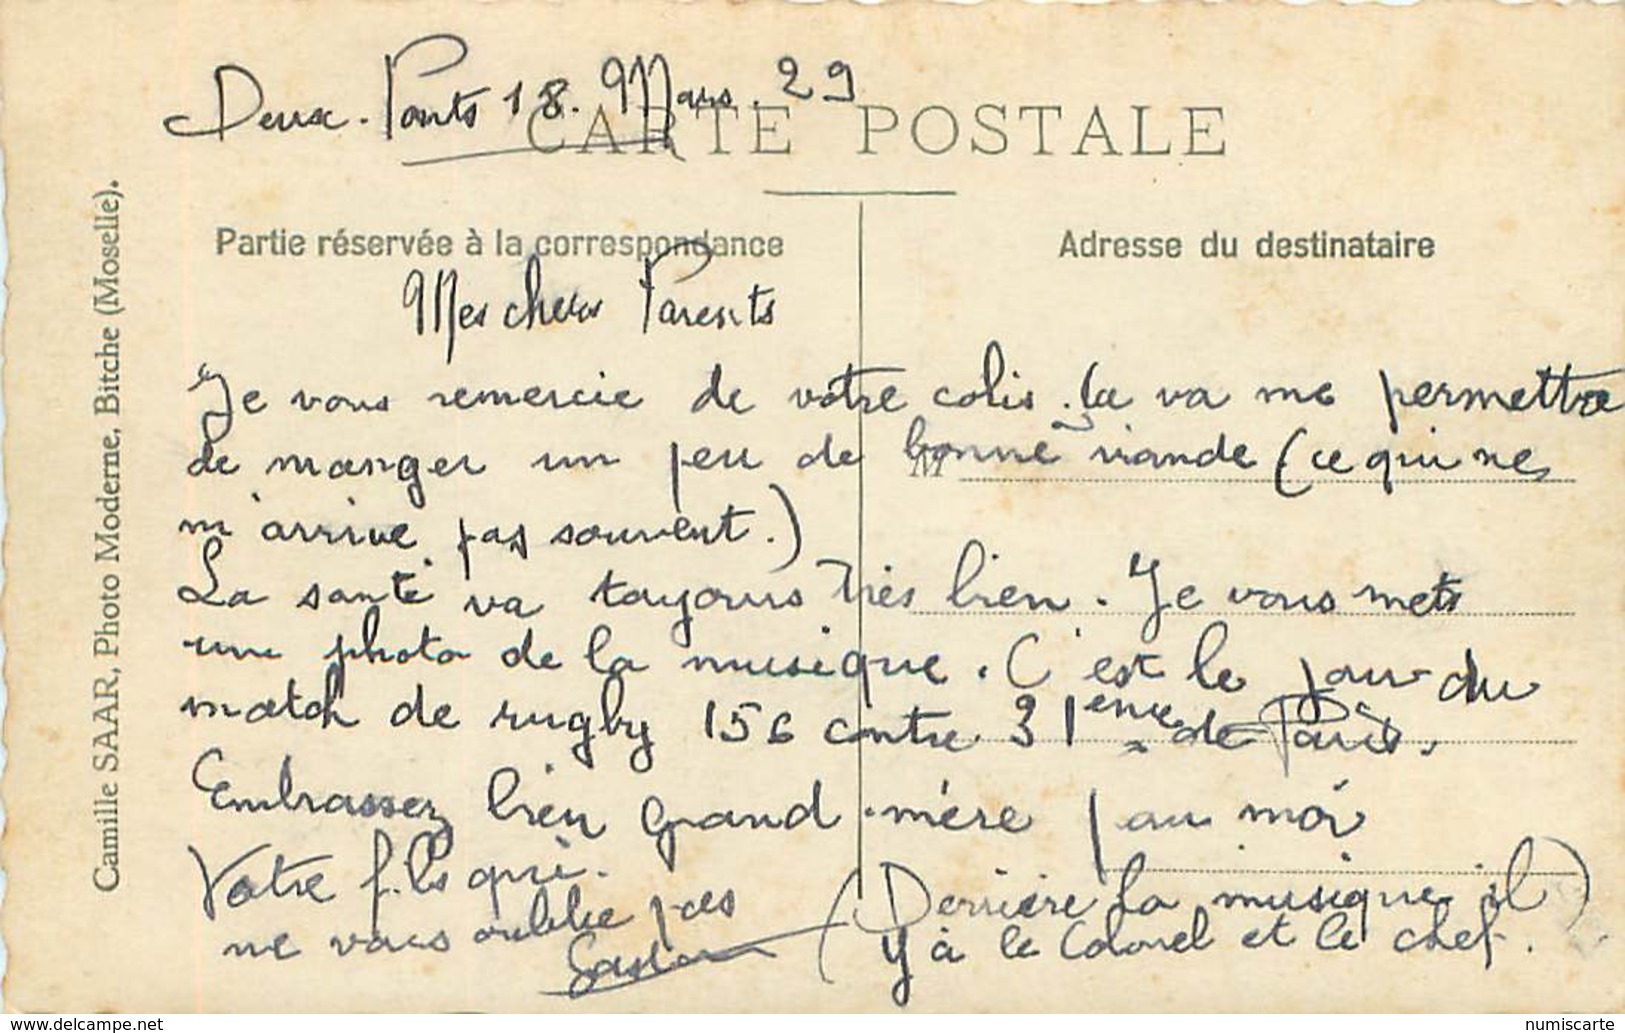 Deux-Ponts 18. Mars. 29
CARTE POSTALE
Partie réservée à la correspondance
Adresse du destinataire
Camille SAAR, Photo Moderne, Bitche (Moselle).
Mes chers Parents
Je vous remercie de votre colis. Ça va me permettre
de manger un peu de bonne viande (ce qui ne
m'arrive pas souvent.)
La santé va toujours très bien. Je vous mets
une photo de la musique. C'est le jour du
match de rugby 156 contre 31ème de Paris.
Embrassez bien grand-mère pour moi
Votre fils qui
ne vous oublie pas
Gaston
(Derrière la musique il
y à le Colonel et le chef.)
delcampe.net
numiscarte